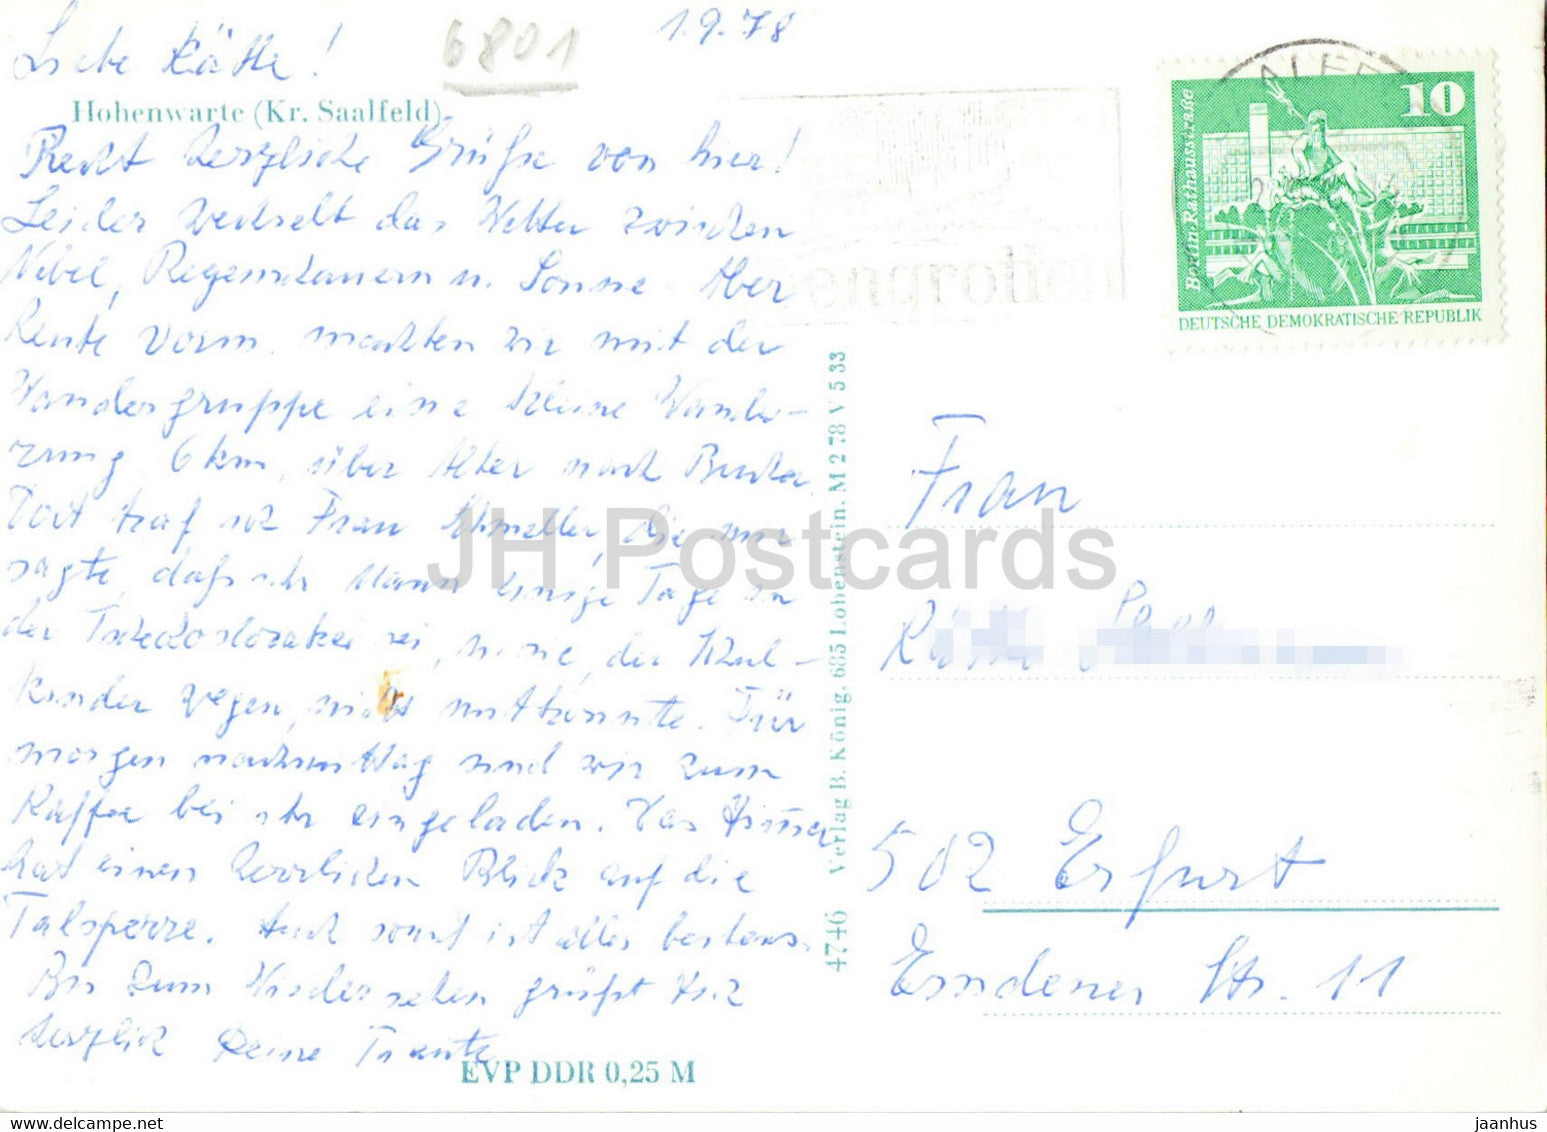 1.9.78
Liebe Käthe!
6801
Hohenwarte (Kr. Saalfeld)
Recht herzliche Grüße von hier!
Leider wechselt das Wetter zwischen
Nebel, Regenschauern u. Sonne. Aber
heute vorm. machten wir mit der
Wandergruppe eine kleine Wande-
rung, 6 km, über Alter nach
Dort traf ich Frau Schmeller, die mir
sagte, daß ihr Mann einige Tage in
der Tschechoslowakei sei, sie, der Schul-
kinder wegen, nicht mitkonnte. Für
morgen nachmittag sind wir zum
Kaffee bei ihr eingeladen. Das Zimmer
hat einen herrlichen Blick auf die
Talsperre. Auch sonst ist alles bestens.
Bis zum Wiedersehen grüßt Dich
herzlich Deine Traute
EVP DDR 0,25 M
4746 Verlag B. König, 685 Lobenstein. M 2 78 V 5 33
engrotten
10
Berlin Rathausstraße
DEUTSCHE DEMOKRATISCHE REPUBLIK
Frau
502 Erfurt
Emdener Str. 11
JH Postcards
jaanhus